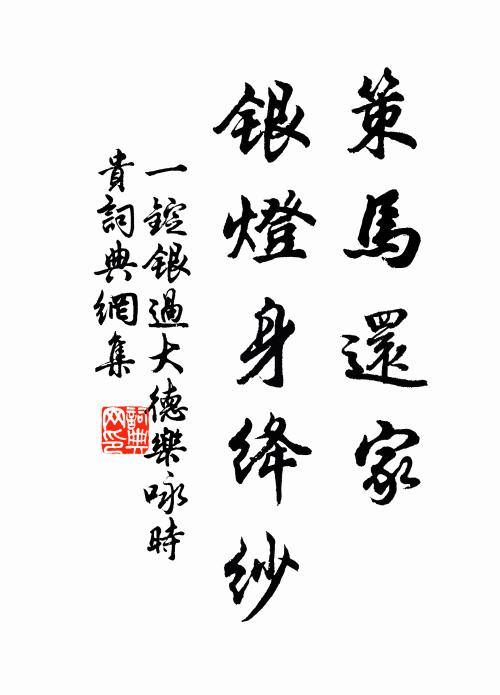 策馬還家
銀燈身絳紗
一錠銀過大德樂咏時
貴詞典網集
詞典
网印